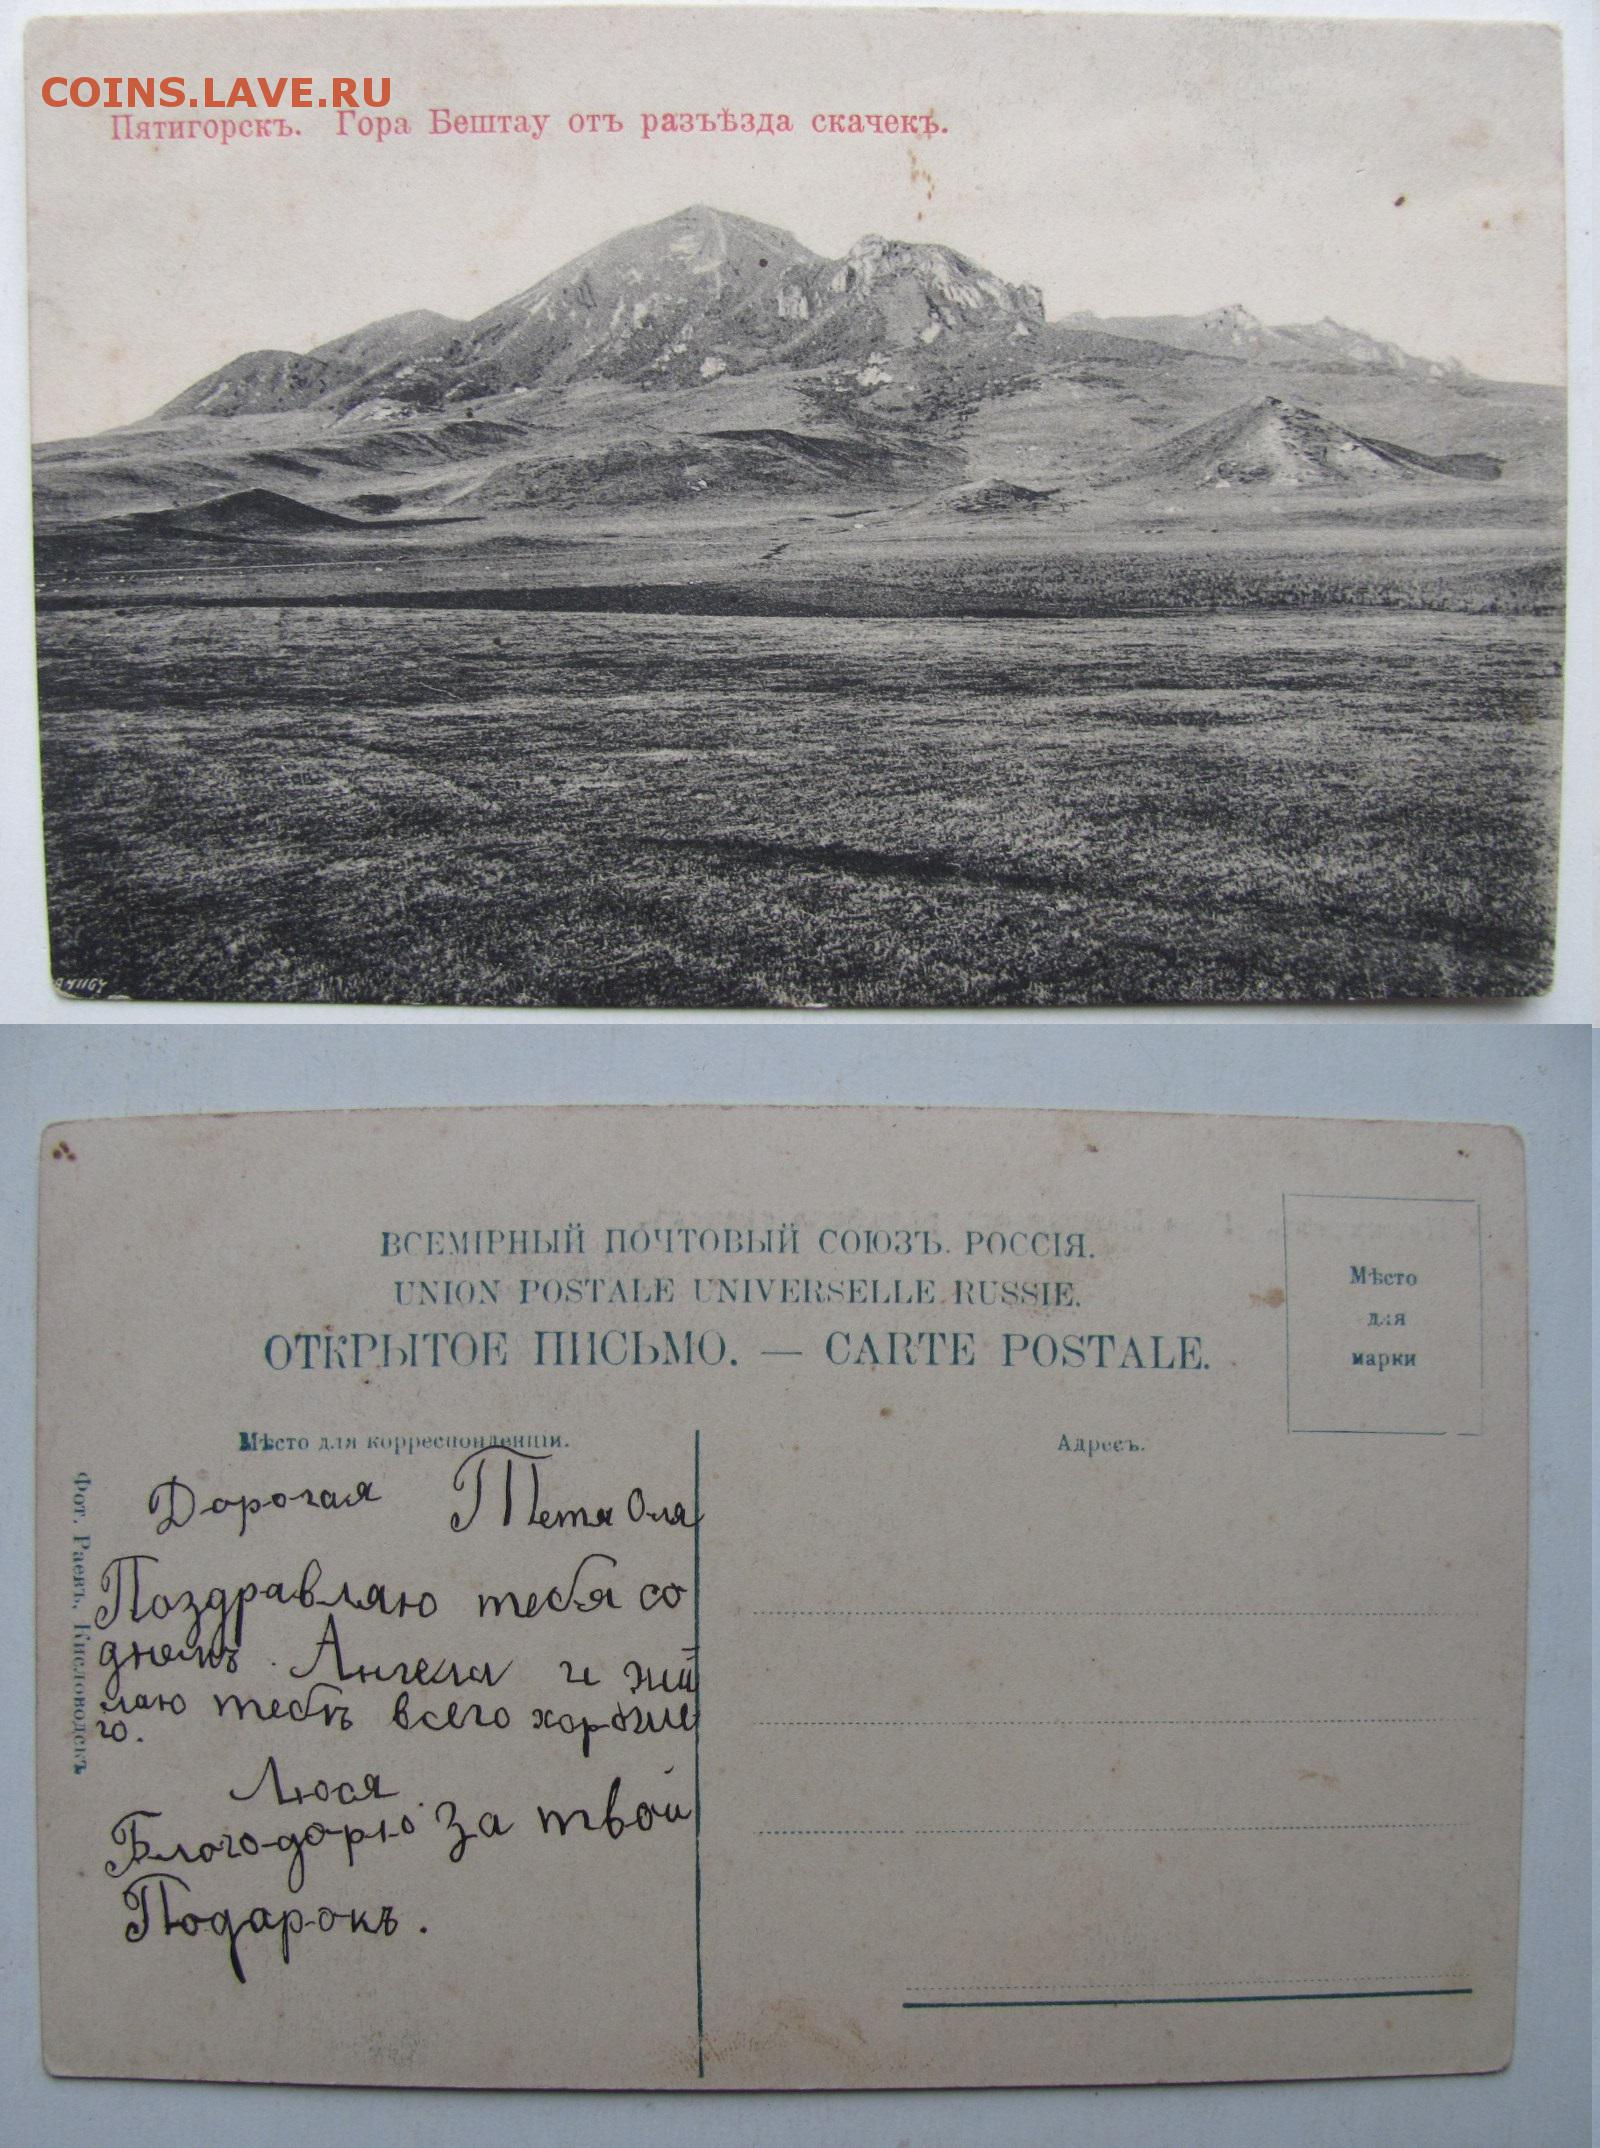 COINS.LAVE.RU
Пятигорскъ. Гора Бештау отъ разъѣзда скачекъ.
ВСЕМІРНЫЙ ПОЧТОВЫЙ СОЮЗЪ. РОССІЯ.
UNION POSTALE UNIVERSELLE RUSSIE.
ОТКРЫТОЕ ПИСЬМО. — CARTE POSTALE.
Мѣсто
для
марки
Мѣсто для корреспонденціи.
Адресъ.
Фот. Раевъ, Кисловодскъ
Дорогая Тетя Оля
Поздравляю тебя со
днемъ Ангела и
лаю тебѣ всего хороше
го.
Люся.
Благодорю за твой
Подарокъ.